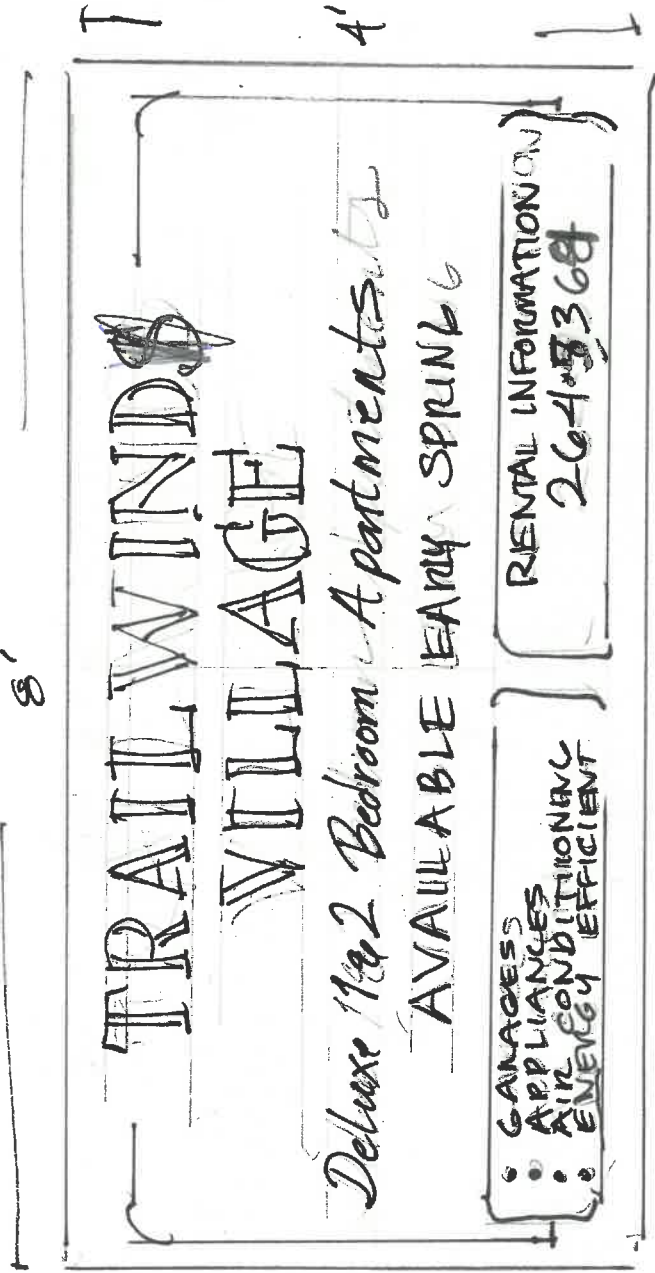 8'
4'
TRAILWIND
VILLAGE
Deluxe 1 & 2 Bedroom Apartments
AVAILABLE EARLY SPRING
• GARAGES
• APPLIANCES
• AIR CONDITIONING
• ENERGY EFFICIENT
RENTAL INFORMATION